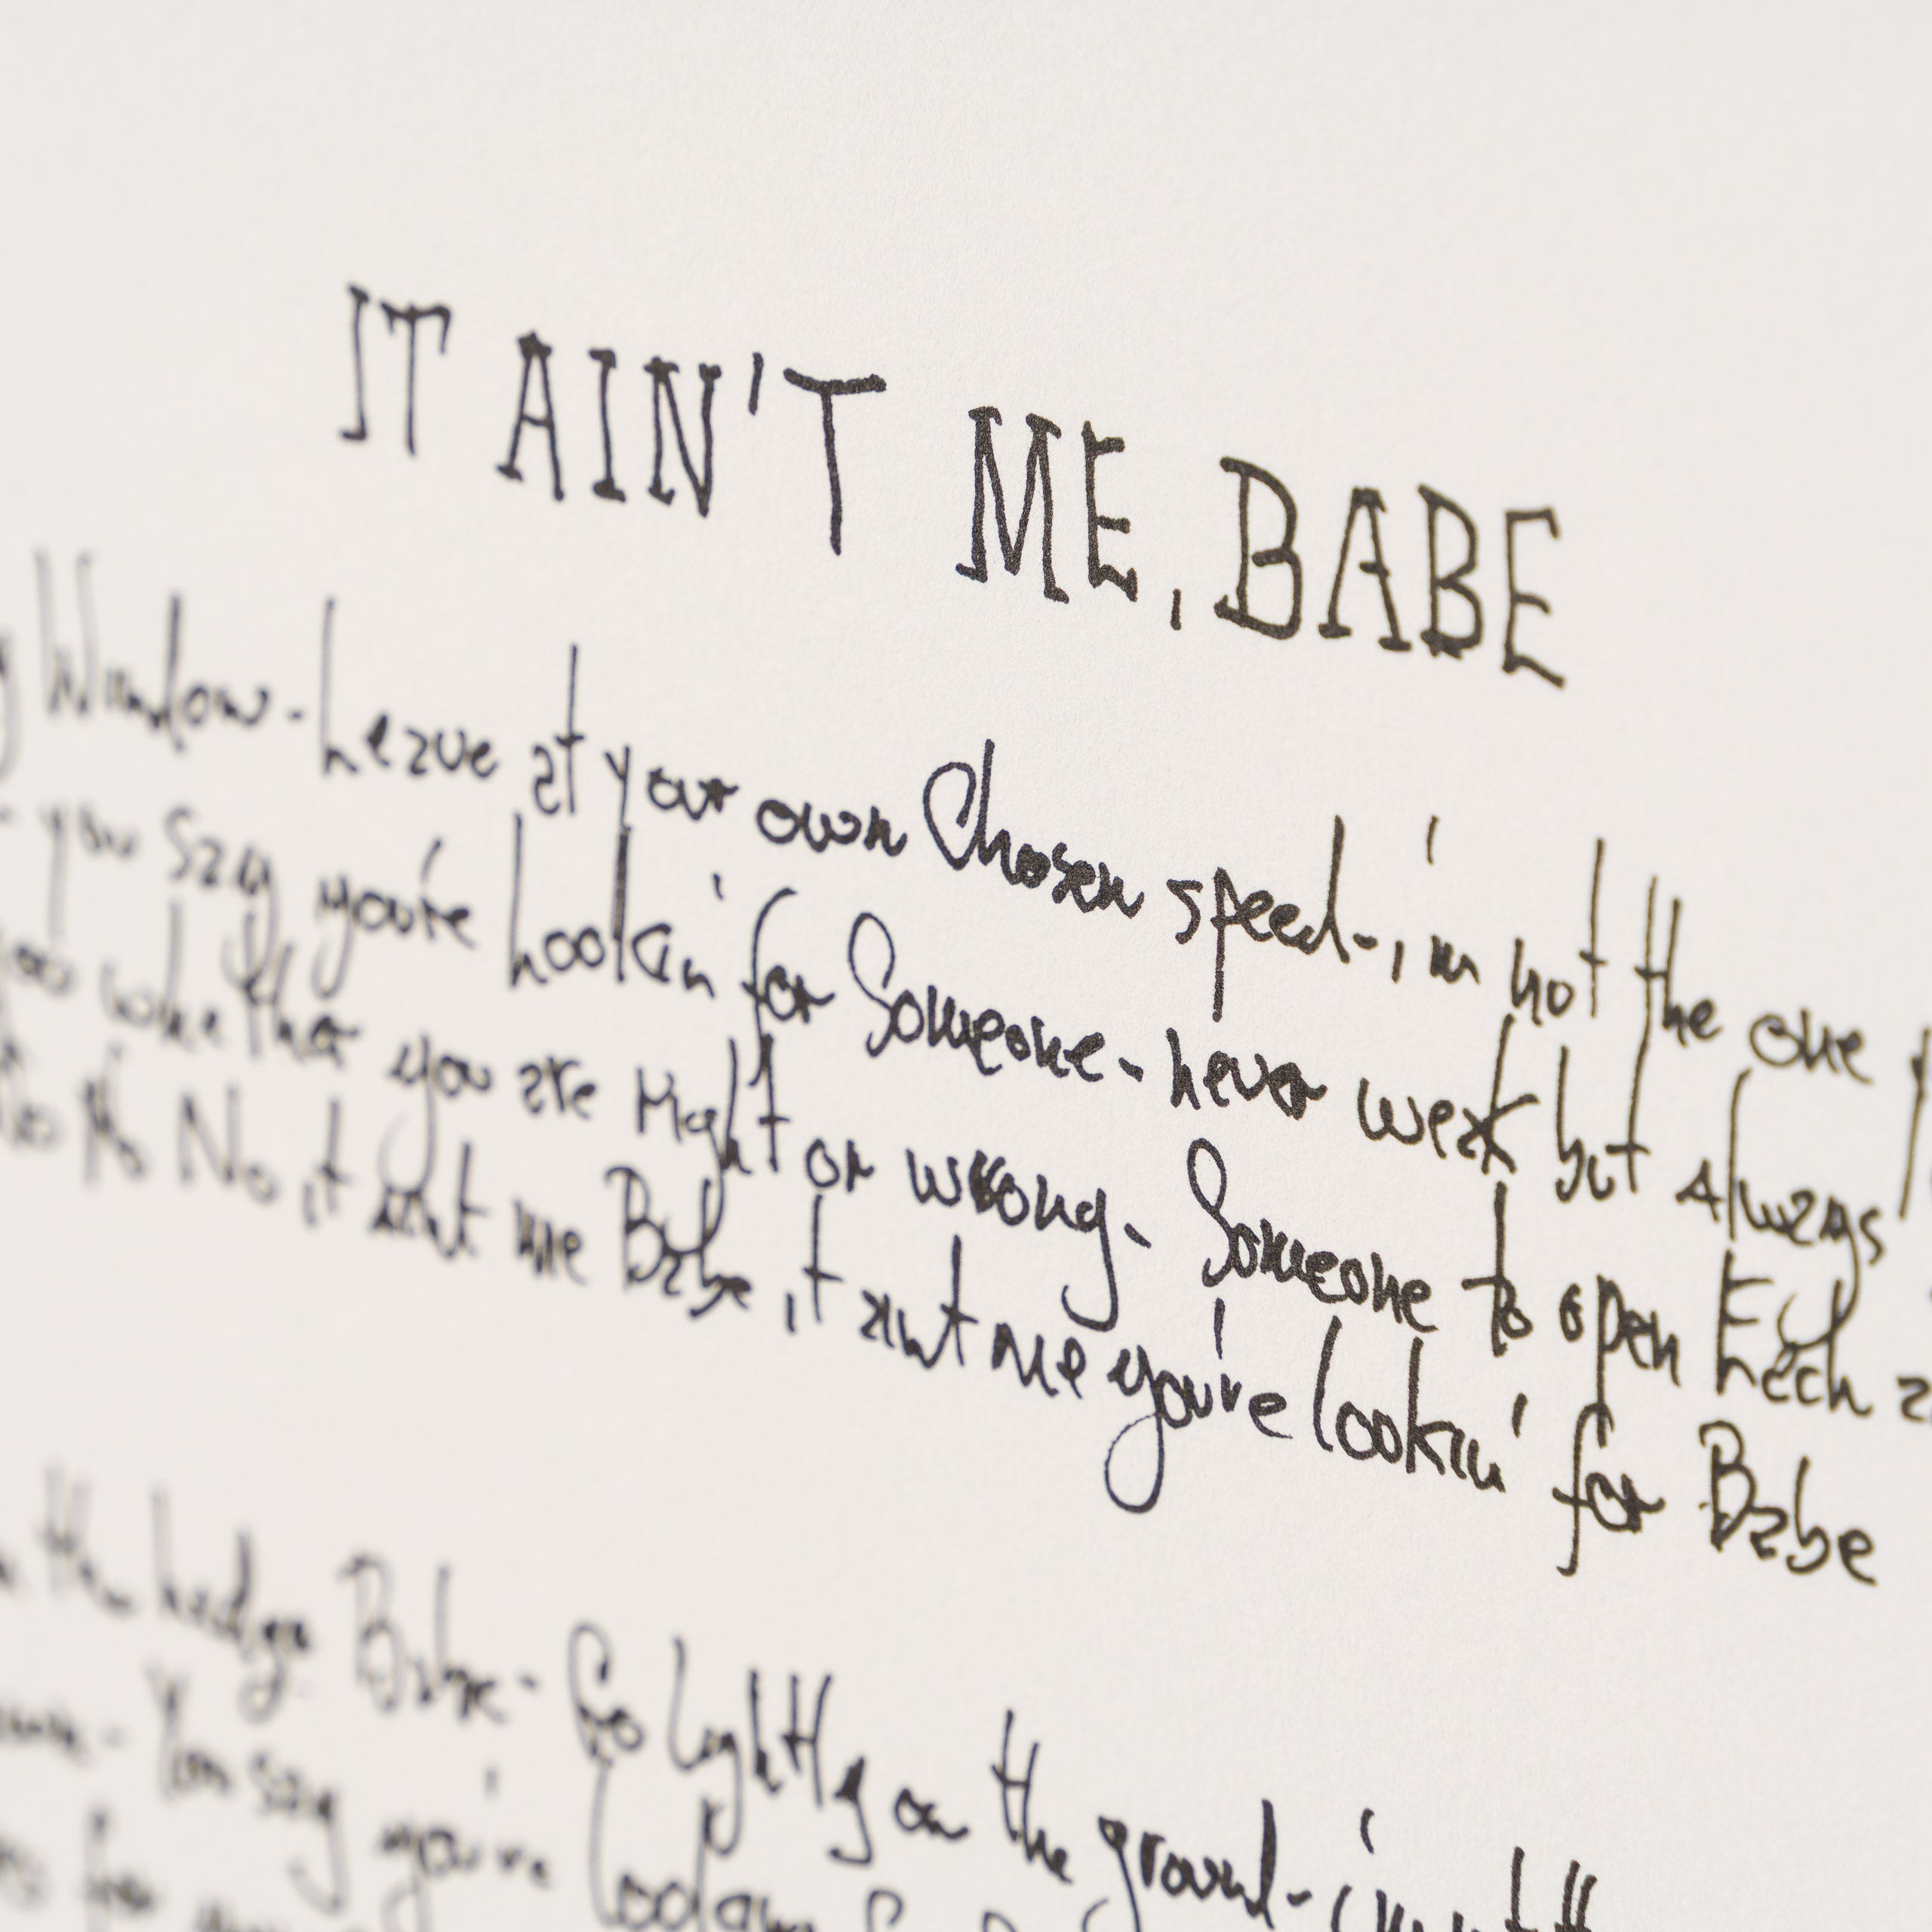 IT AIN'T ME, BABE
Window - Leave at your own Chosen speed - i'm not the one
- you say you're Lookin' for Someone - never weak but always
you whether you are right or wrong. Someone to open Each
No No No it aint me Babe, it aint me you're lookin' for Babe
the hedge Babe - Go lightly on the ground - i'm not the
You say you're lookin
for